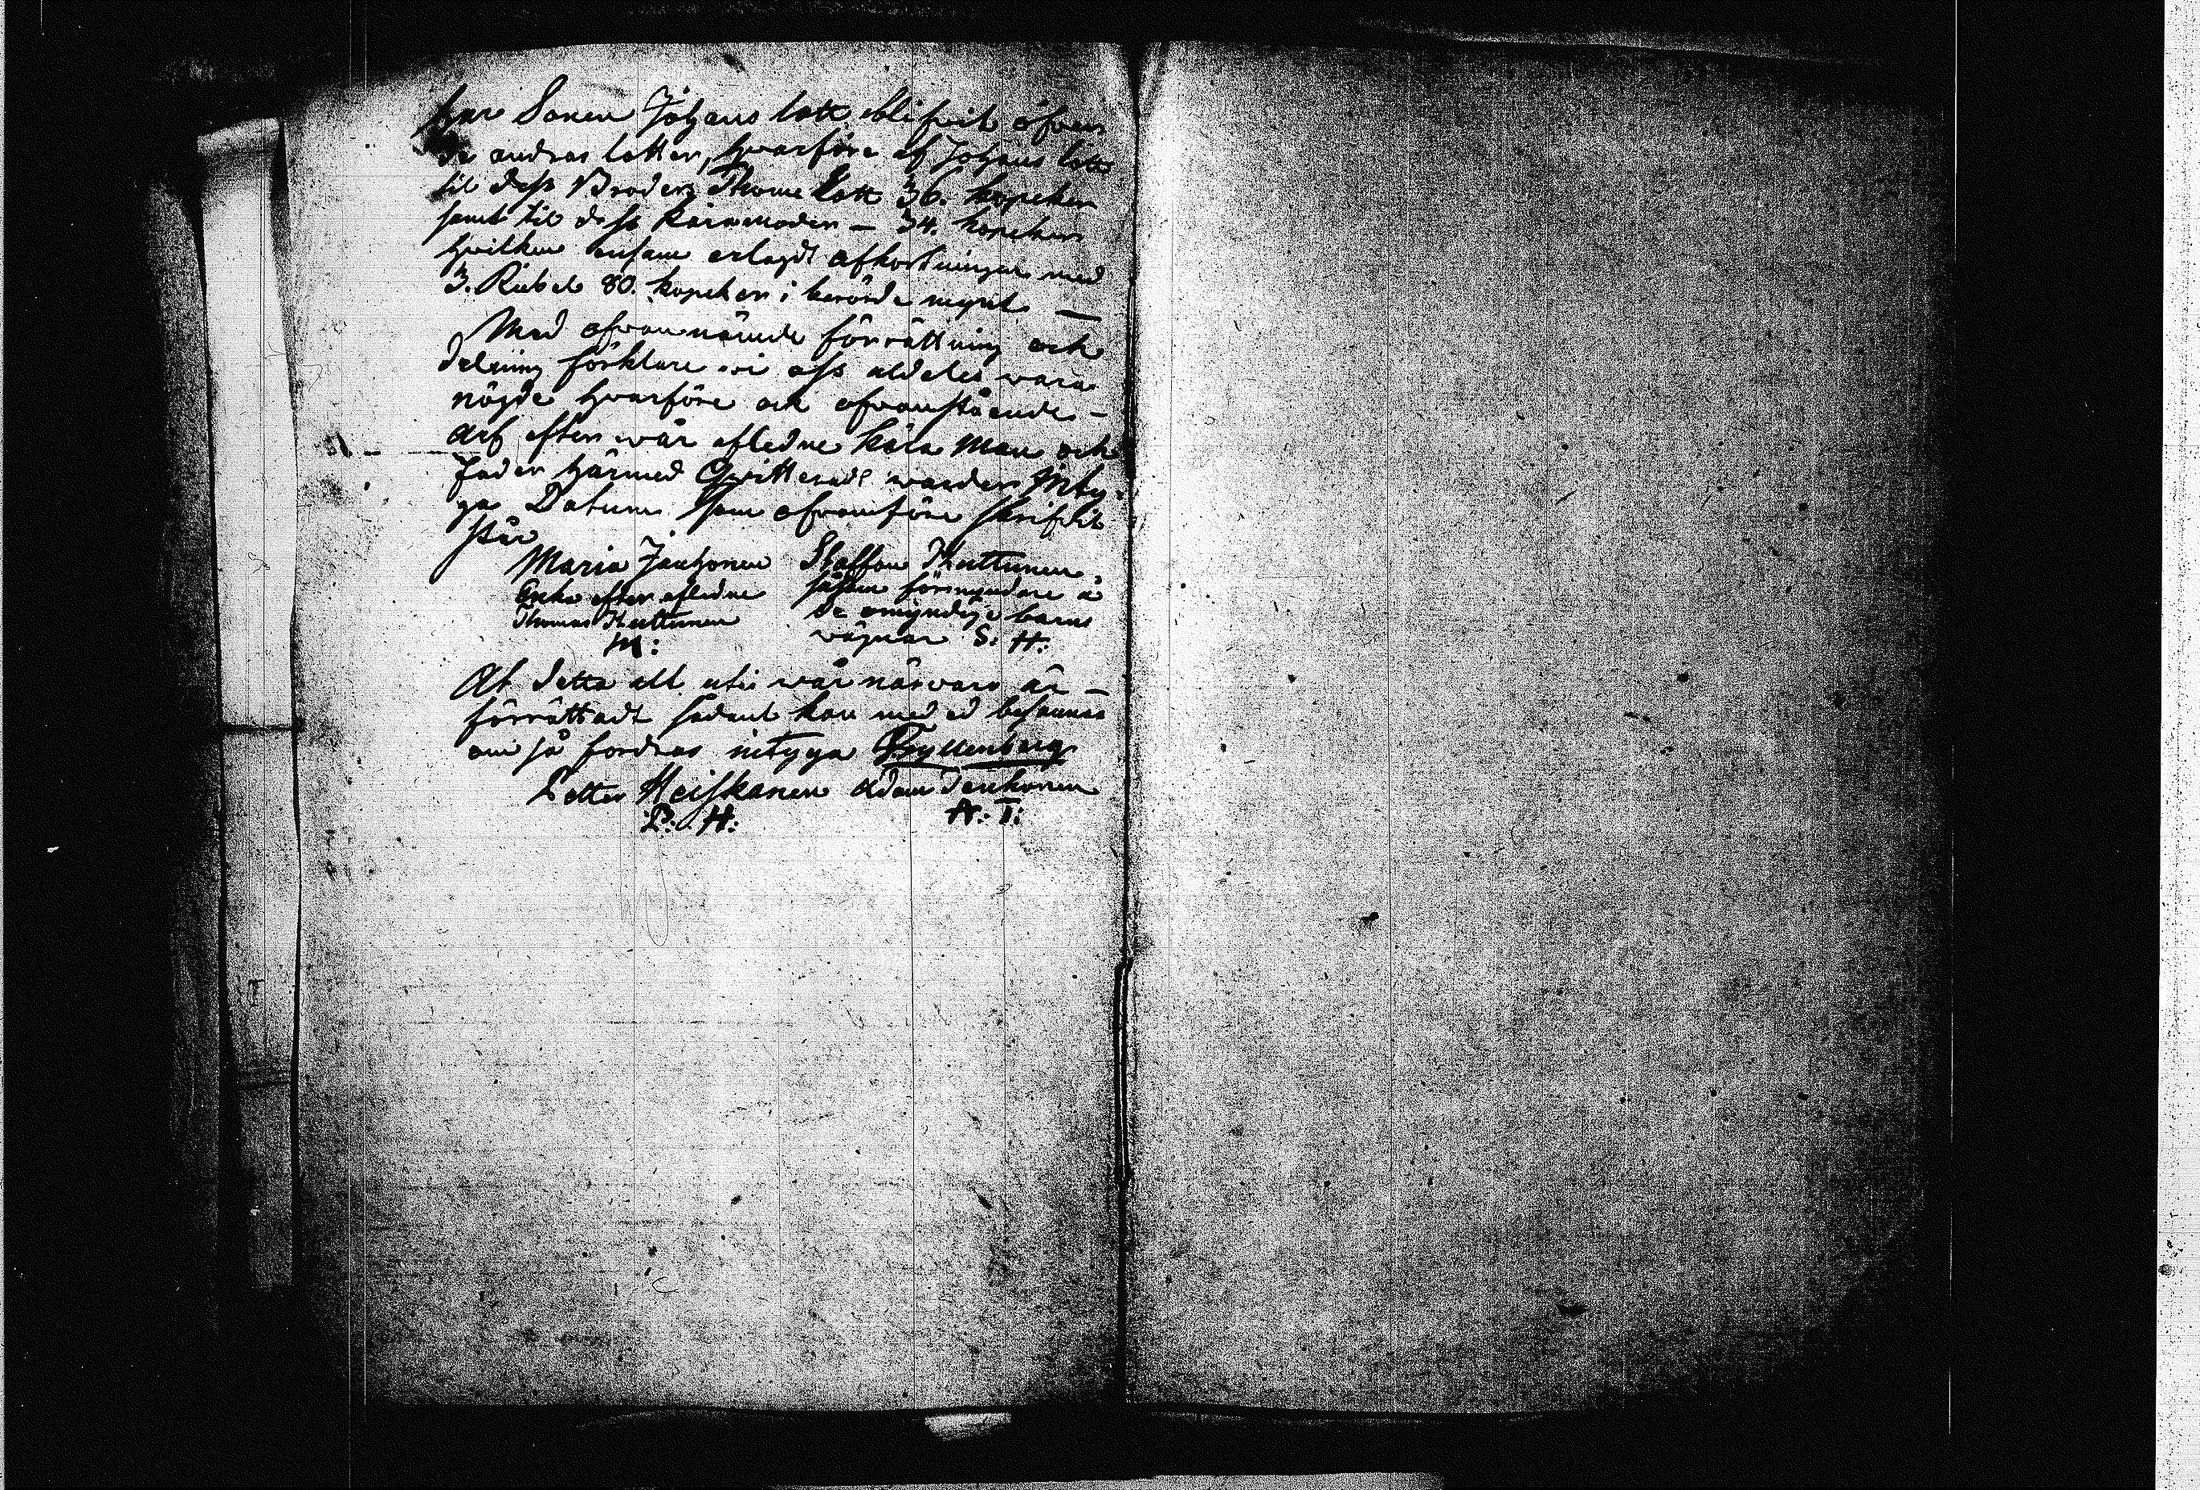 har Sonen Johans lott blifvit öfver
de andras lotter, hvarföre af Johans lott
til dess Broders Thome lott 36. kopeken
samt til dess kära moder — 34. kopeken
hvilken ensam erlagdt afkortningen med
3. Rubel 80. kopeken i berörde mynt —
Med ofvannämde förrättning och
delning förklare vi oss aldeles wara
nögde hvarföre ock ofvanstående —
arf efter wår afledne kära Man och
Fader härmed Qvitterade warder Inty-
ga Datum som ofvanföre skrifvit
står
Maria Jauhonen Staffan Huttunen,
Enka efter afledne såsom förmyndare å
Thomas Huttunen de omyndige barns
M: vägnar S: H:
At detta alt uti wår närvaro är —
förrättadt sådant kan med ed besannas
om så fordras intyga Gyllenberg
Petter Heiskanen Adam Tenhonen
P: H: A: T: